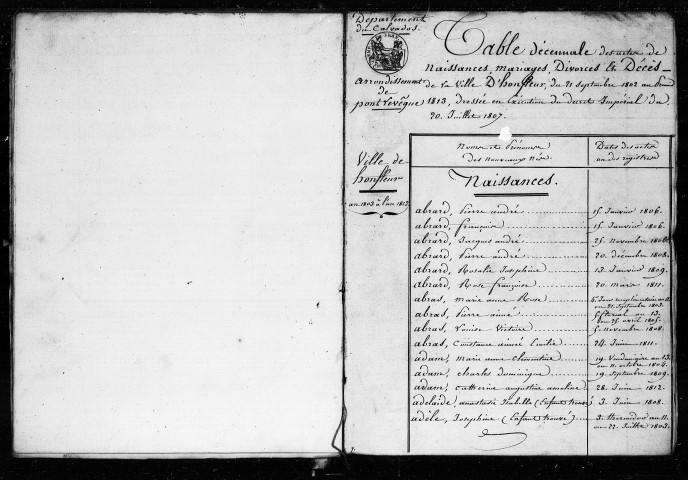 Département
du Calvados.
arrondissement
de
pont Levêque
Table décennale des actes de
Naissances, mariages, Divorces & Décès
de la Ville D'honfleur, du 21 Septembre 1802 au
1813, dressée en Exécution du décret Impérial du
20. Juillet 1807.
Ville de
honfleur
an 1803 à l'an 1813
Noms et Prénoms
des nouveaux Nés.
Dates des actes
ou des registres
Naissances.
abrard, Pierre andré 15. Janvier 1806.
abrard, françois 15. Janvier 1806.
abrard, Jacques andré 25. Novembre 1806
abrard, Pierre andré 20. décembre 1808.
abrard, Rosalie Josephine 13. Janvier 1809.
abrard, Rose françoise 20. mars 1811.
abras, marie anne Rose 5. Jour complémentaire an 11
ou 22. Septembre 1803.
abras, Pierre aimé 5 floréal an 13
ou 25. avril 1805.
abras, Louise Victoire 5. novembre 1808.
abras, Constance aimée Emilie 24. Juin 1811.
adam, marie anne Clementine 19. Vendémiaire an 13
ou 11. octobre 1804.
adam, charles dominique 19. Septembre 1809.
adam, Catherine augustine ameline 28. Juin 1812.
adelaide, anastasie Isabelle (Enfant trouvé) 3. Juin 1808.
adèle, Josephine (Enfant trouvé) 3. thermidor an 11.
ou 22. Juillet 1803.